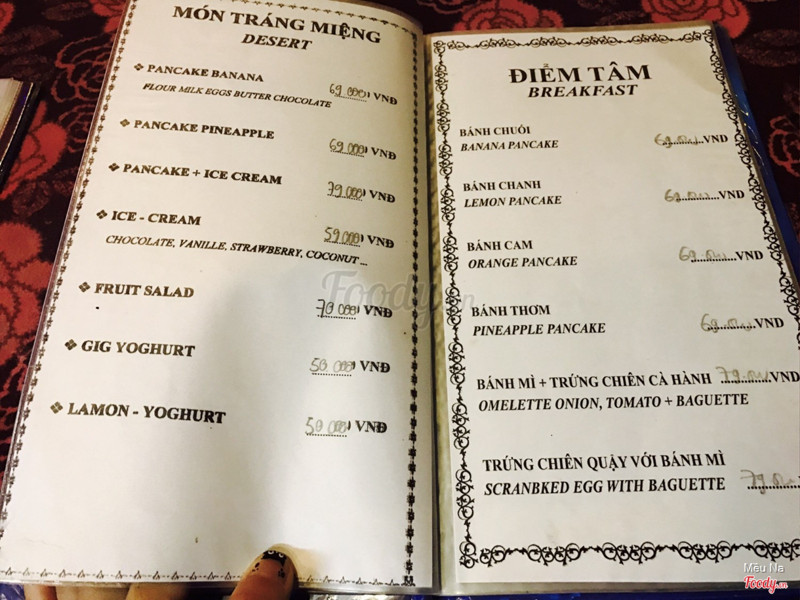 MÓN TRÁNG MIỆNG
DESERT
❖ PANCAKE BANANA 69.000 VNĐ
FLOUR MILK EGGS BUTTER CHOCOLATE
❖ PANCAKE PINEAPPLE 69.000 VNĐ
❖ PANCAKE + ICE CREAM 79.000 VNĐ
❖ ICE - CREAM 59.000 VNĐ
CHOCOLATE, VANILLE, STRAWBERRY, COCONUT ...
❖ FRUIT SALAD 70 000 VNĐ
❖ GIG YOGHURT 50 000 VNĐ
❖ LAMON - YOGHURT 50 000 VNĐ
ĐIỂM TÂM
BREAKFAST
BÁNH CHUỐI
BANANA PANCAKE VND
BÁNH CHANH
LEMON PANCAKE VND
BÁNH CAM
ORANGE PANCAKE VND
BÁNH THƠM
PINEAPPLE PANCAKE VND
BÁNH MÌ + TRỨNG CHIÊN CÀ HÀNH VND
OMELETTE ONION, TOMATO + BAGUETTE
TRỨNG CHIÊN QUẬY VỚI BÁNH MÌ
SCRANBKED EGG WITH BAGUETTE
Foody.vn
Mều Na
Foody.vn